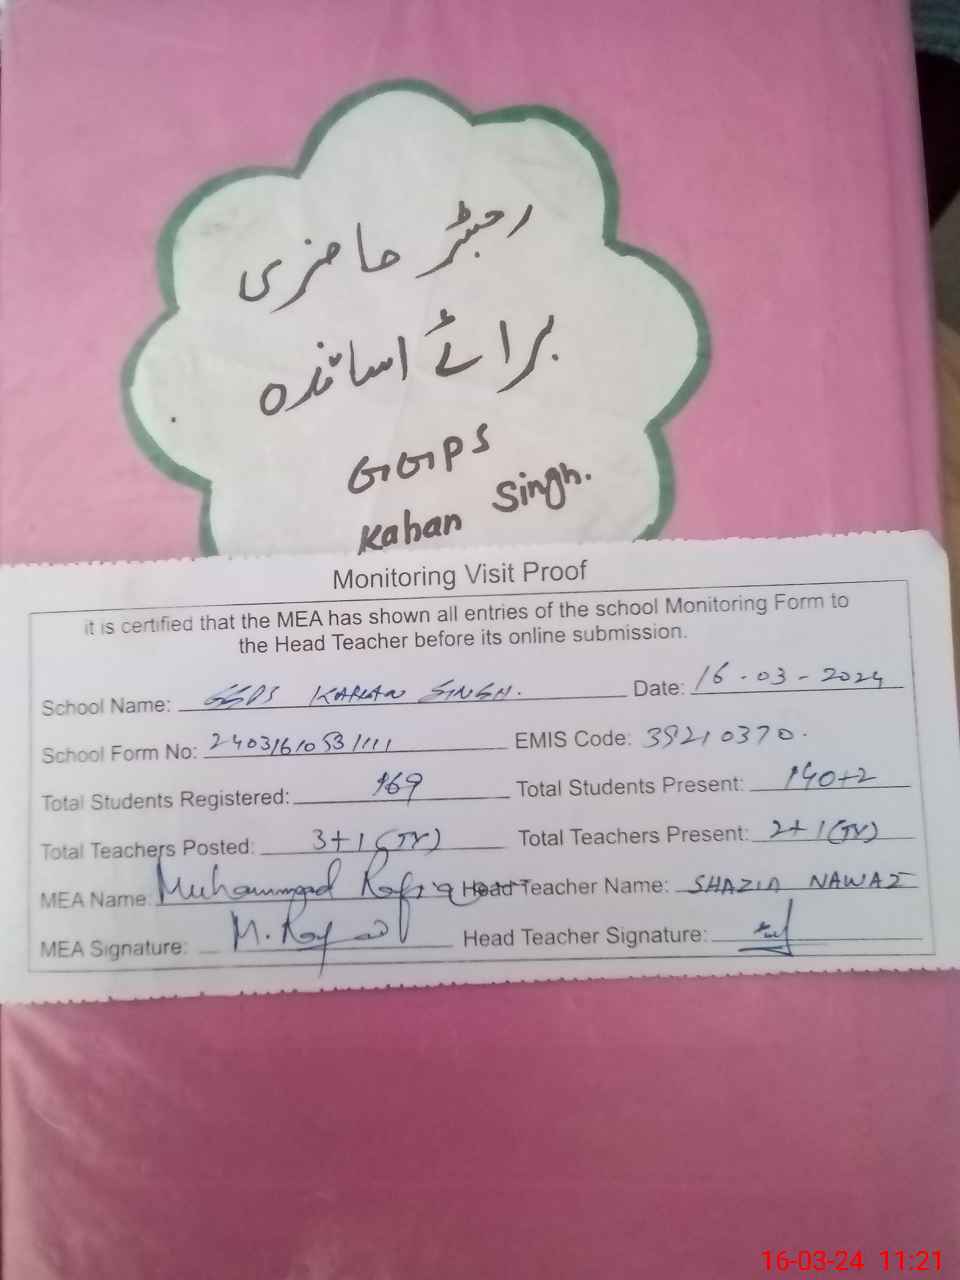 رجسٹر حاضری
برائے اساتذہ
GGPS
Kahan Singh.
Monitoring Visit Proof
it is certified that the MEA has shown all entries of the school Monitoring Form to
the Head Teacher before its online submission.
School Name: GGPS KAHAN SINGH. Date: 16-03-2024
School Form No: 2403161053/111 EMIS Code: 39210370.
Total Students Registered: 169 Total Students Present: 140+2
Total Teachers Posted: 3+1 Total Teachers Present: 2+1
MEA Name: Muhammad Rafiq Head Teacher Name: SHAZIA NAWAZ
MEA Signature: Head Teacher Signature:
16-03-24 11:21